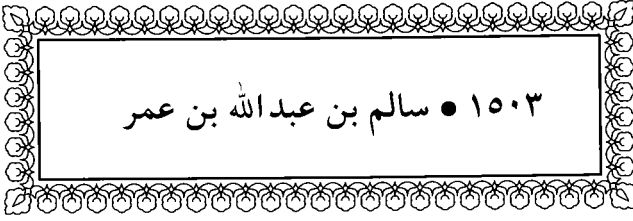 ١٥٠٣ ● سالم بن عبدالله بن عمر